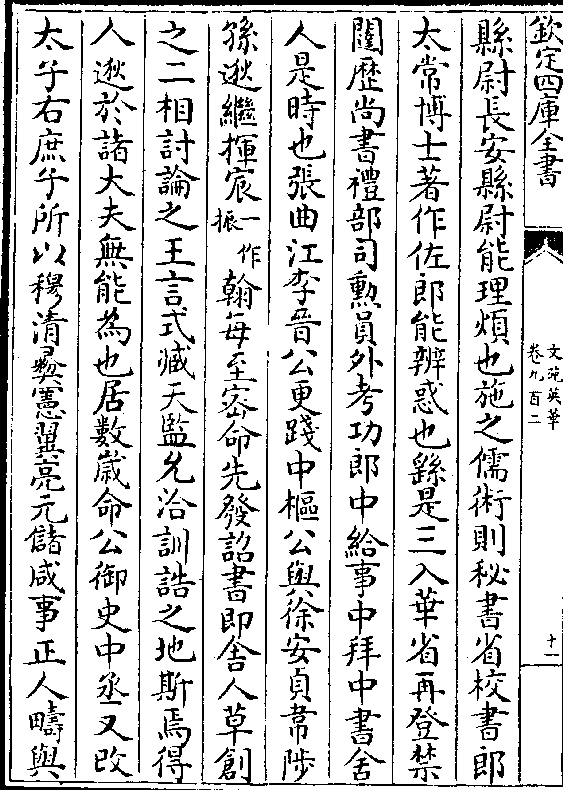 欽定四庫全書
文苑英華
卷九百二
十一
縣尉長安縣尉能理煩也施之儒術則秘書省校書郎
太常博士著作佐郎能辨惑也繇是三入華省再登禁
闥歷尚書禮部司勲員外考功郎中給事中拜中書舍
人是時也張曲江李晉公更踐中樞公與徐安貞韋陟
孫逖繼揮宸一作振翰每至密命先發詔書即舍人草創
之二相討論之王言式臧天監允洽訓誥之地斯焉得
人逖於諸大夫無能為也居數歲命公御史中丞又改
太子右庶子所以穆清彛憲翼亮元儲咸事正人疇與